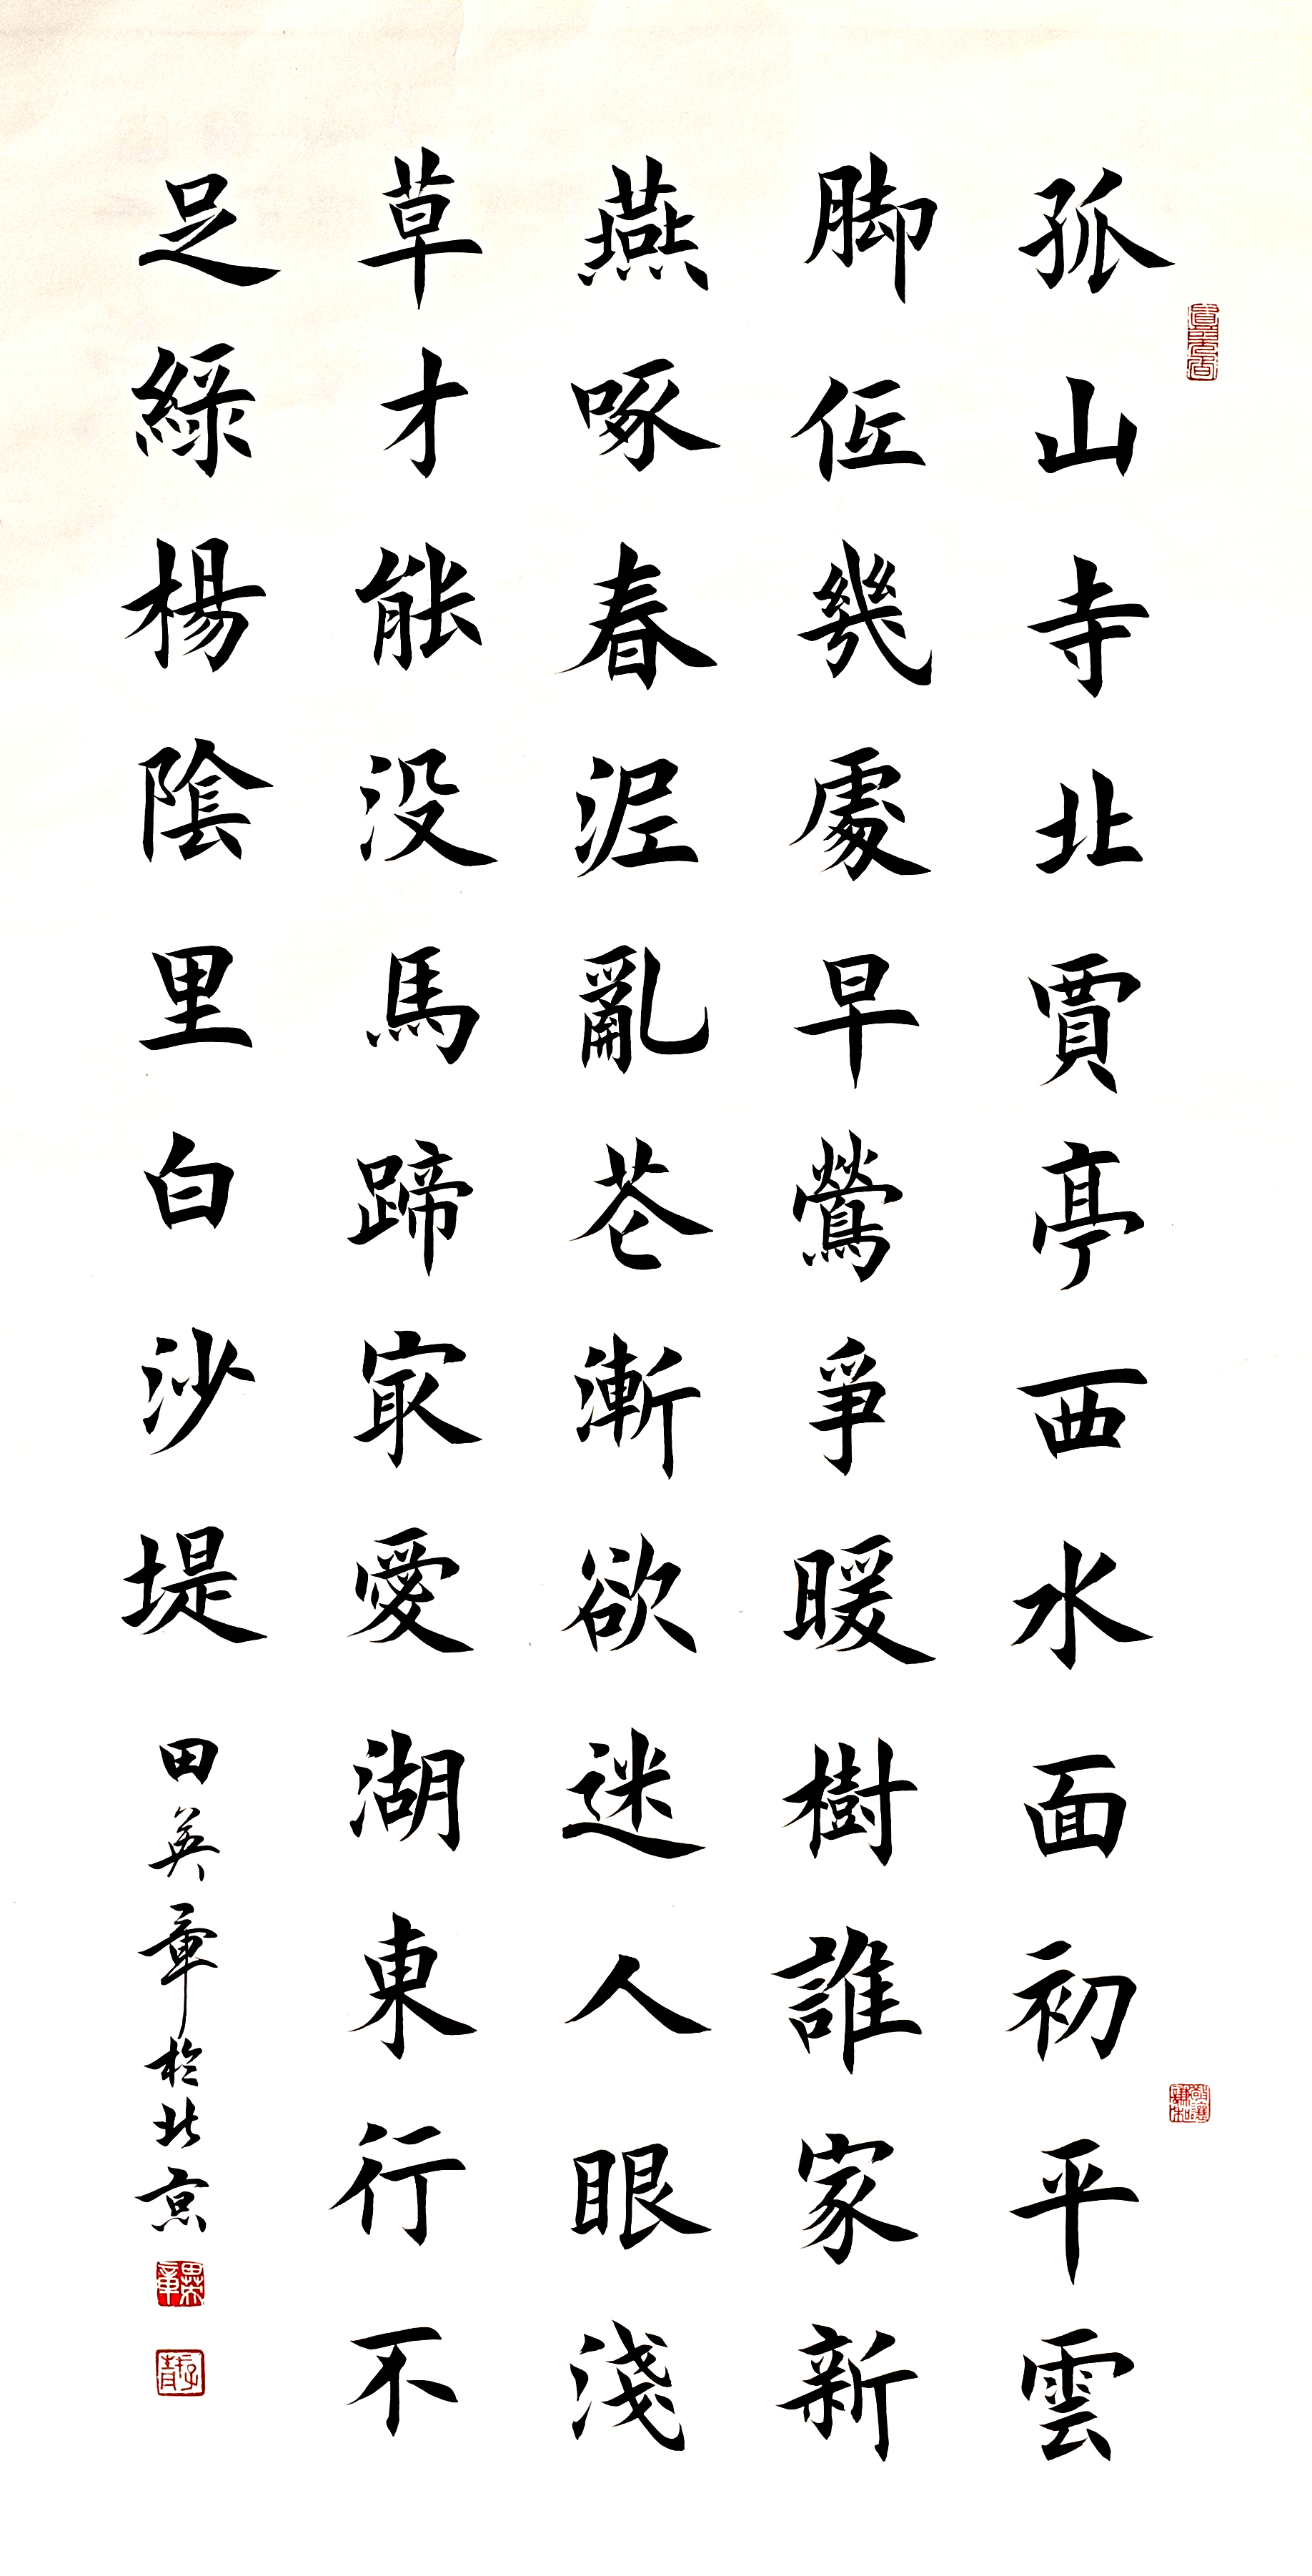 孤山寺北賈亭西水面初平雲
脚低幾處早鶯爭暖樹誰家新
燕啄春泥亂花漸欲迷人眼淺
草才能没馬蹄最愛湖東行不
足綠楊陰里白沙堤
田英章於北京